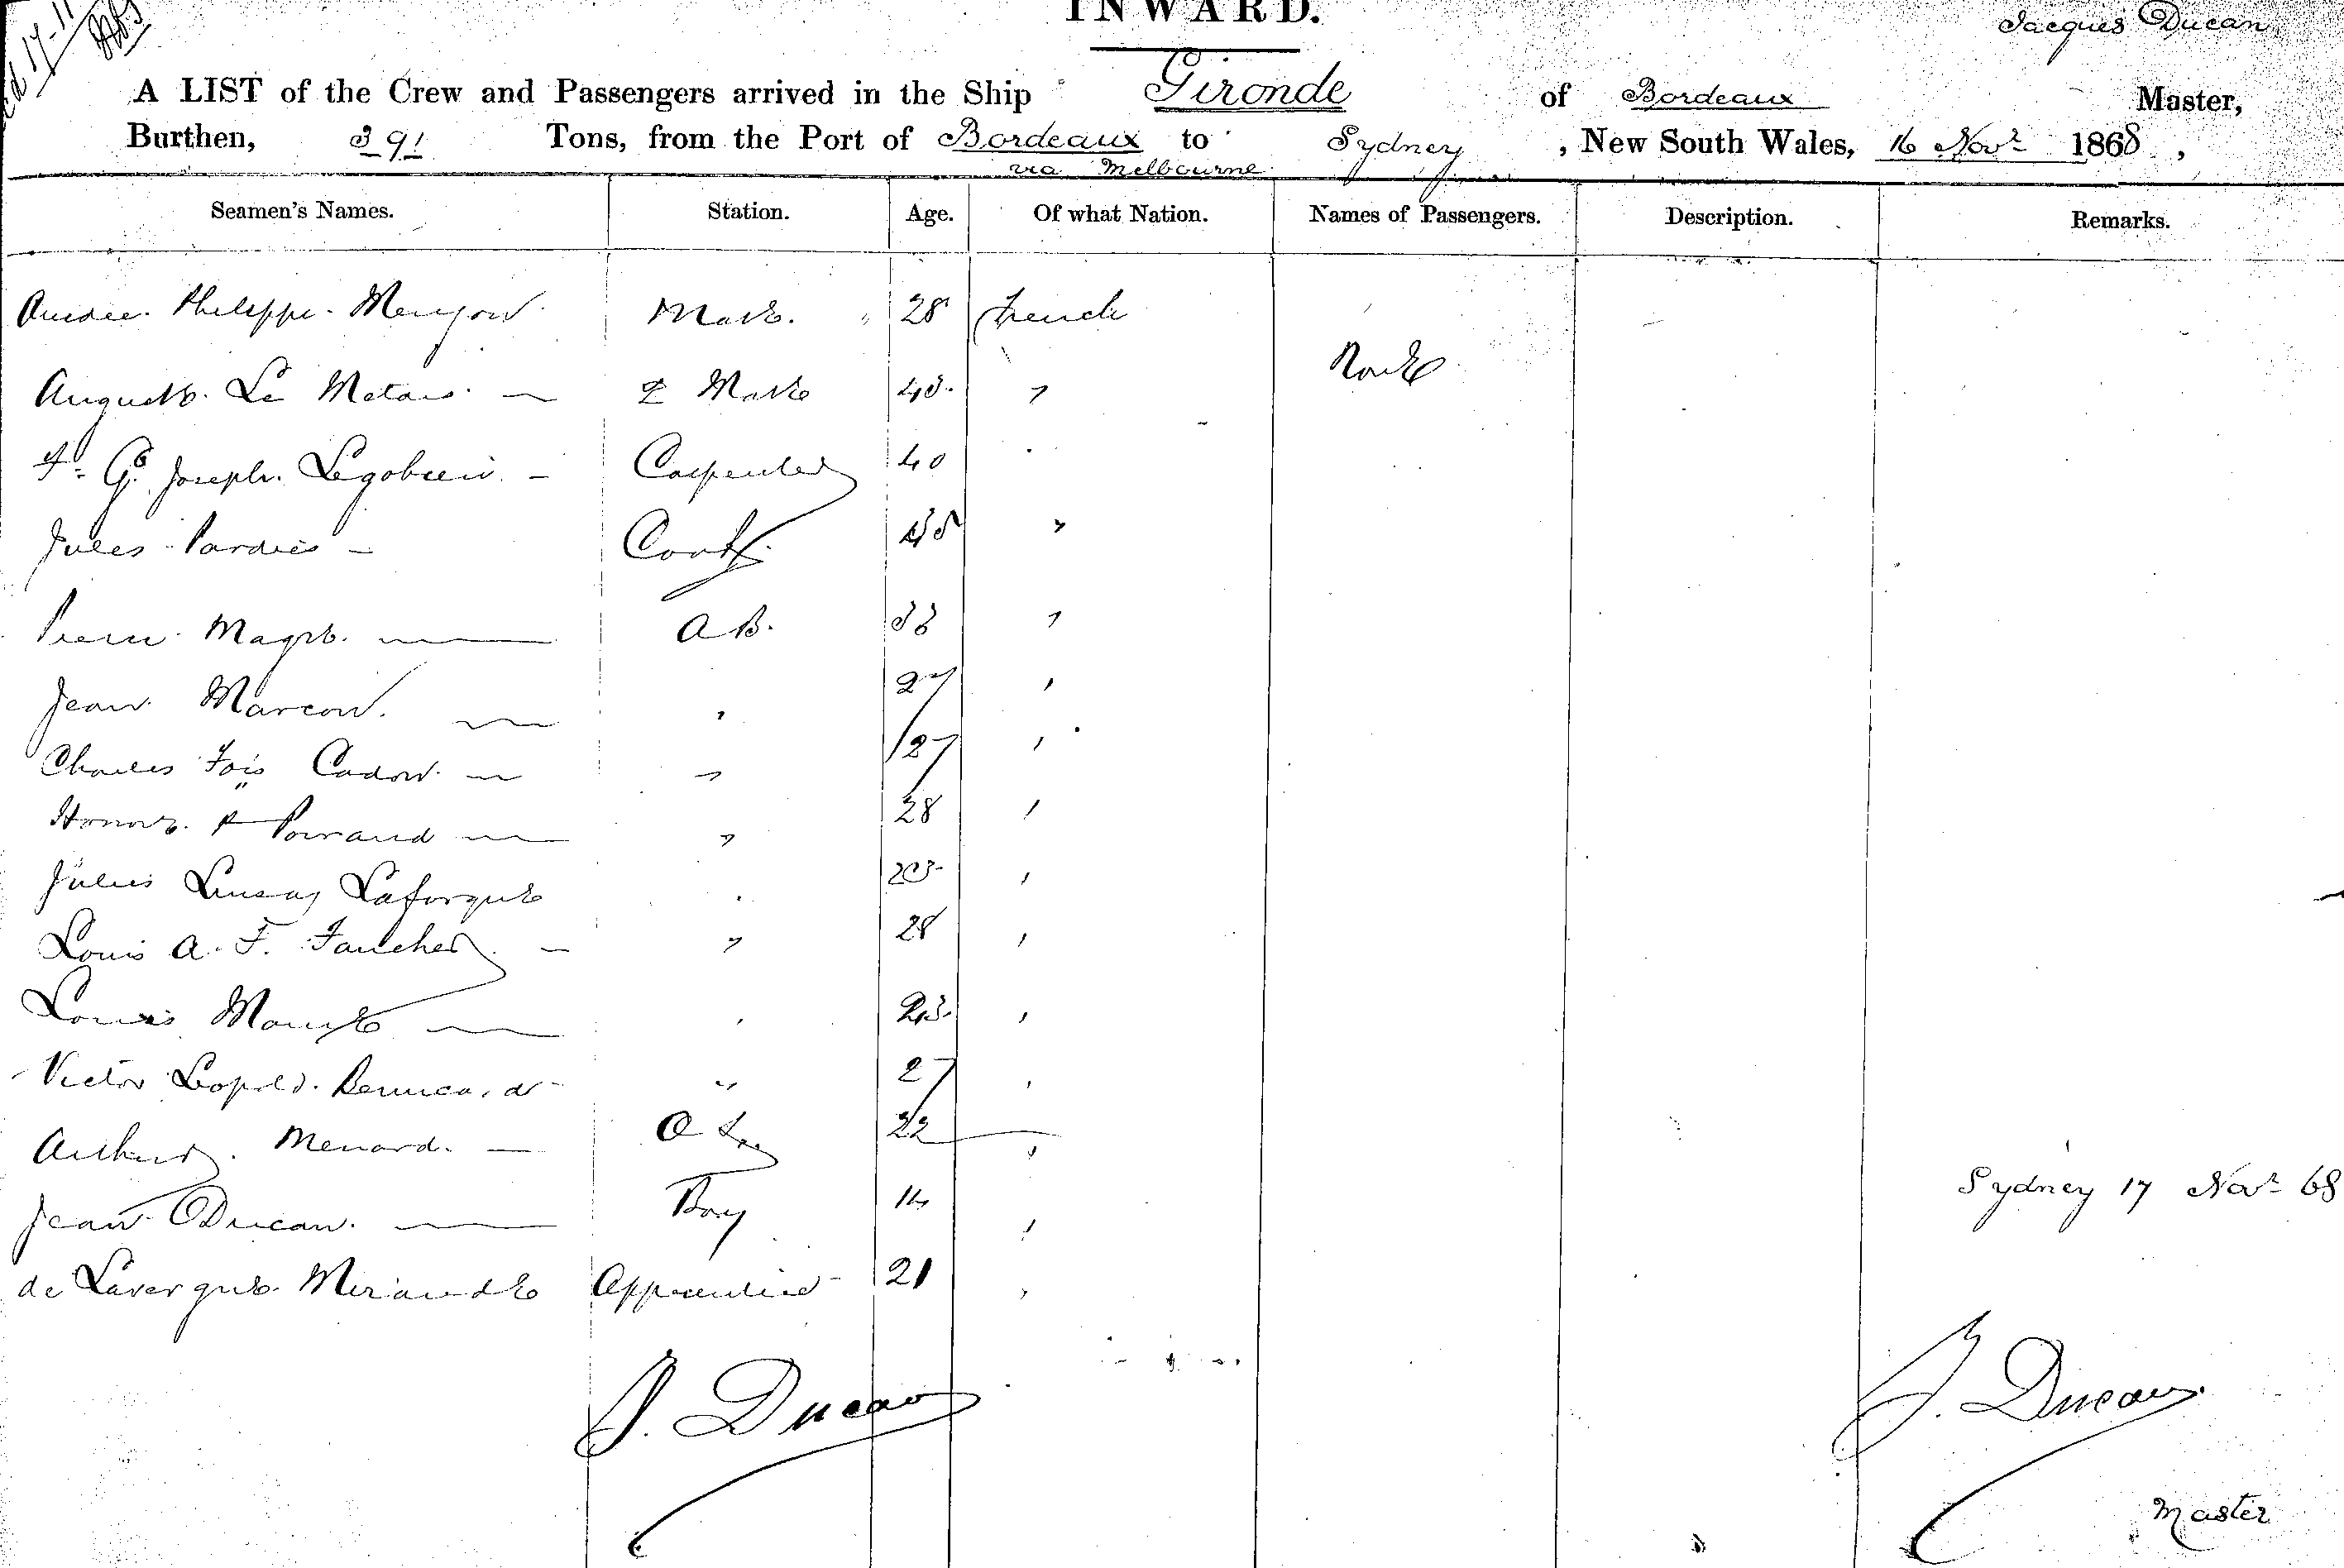 INWARD.
Jacques Ducan
A LIST of the Crew and Passengers arrived in the Ship Gironde of Bordeaux Master,
Burthen, 391 Tons, from the Port of Bordeaux to Sydney, New South Wales, 16 Novr 1868,
via Melbourne
Seamen's Names. Station. Age. Of what Nation. Names of Passengers. Description. Remarks.
Philippe Mate. 28 French
None
Auguste Le Metais 2 Mate
Joseph Carpenter 40
Jules Pardies Cook
Pierre A B. 33
Jean Marcou 27
Charles Fois Cadou 27
Honore 28
Jules Laforgue
Louis A. F. Faucher 28
Louis 23
Victor Leopold 27
Arthur Menard. O S. 22
Jean Ducau Boy 14
Sydney 17 Novr 68
de Lavergne Mirande Apprentice 21
J. Ducau
J. Ducau
Master